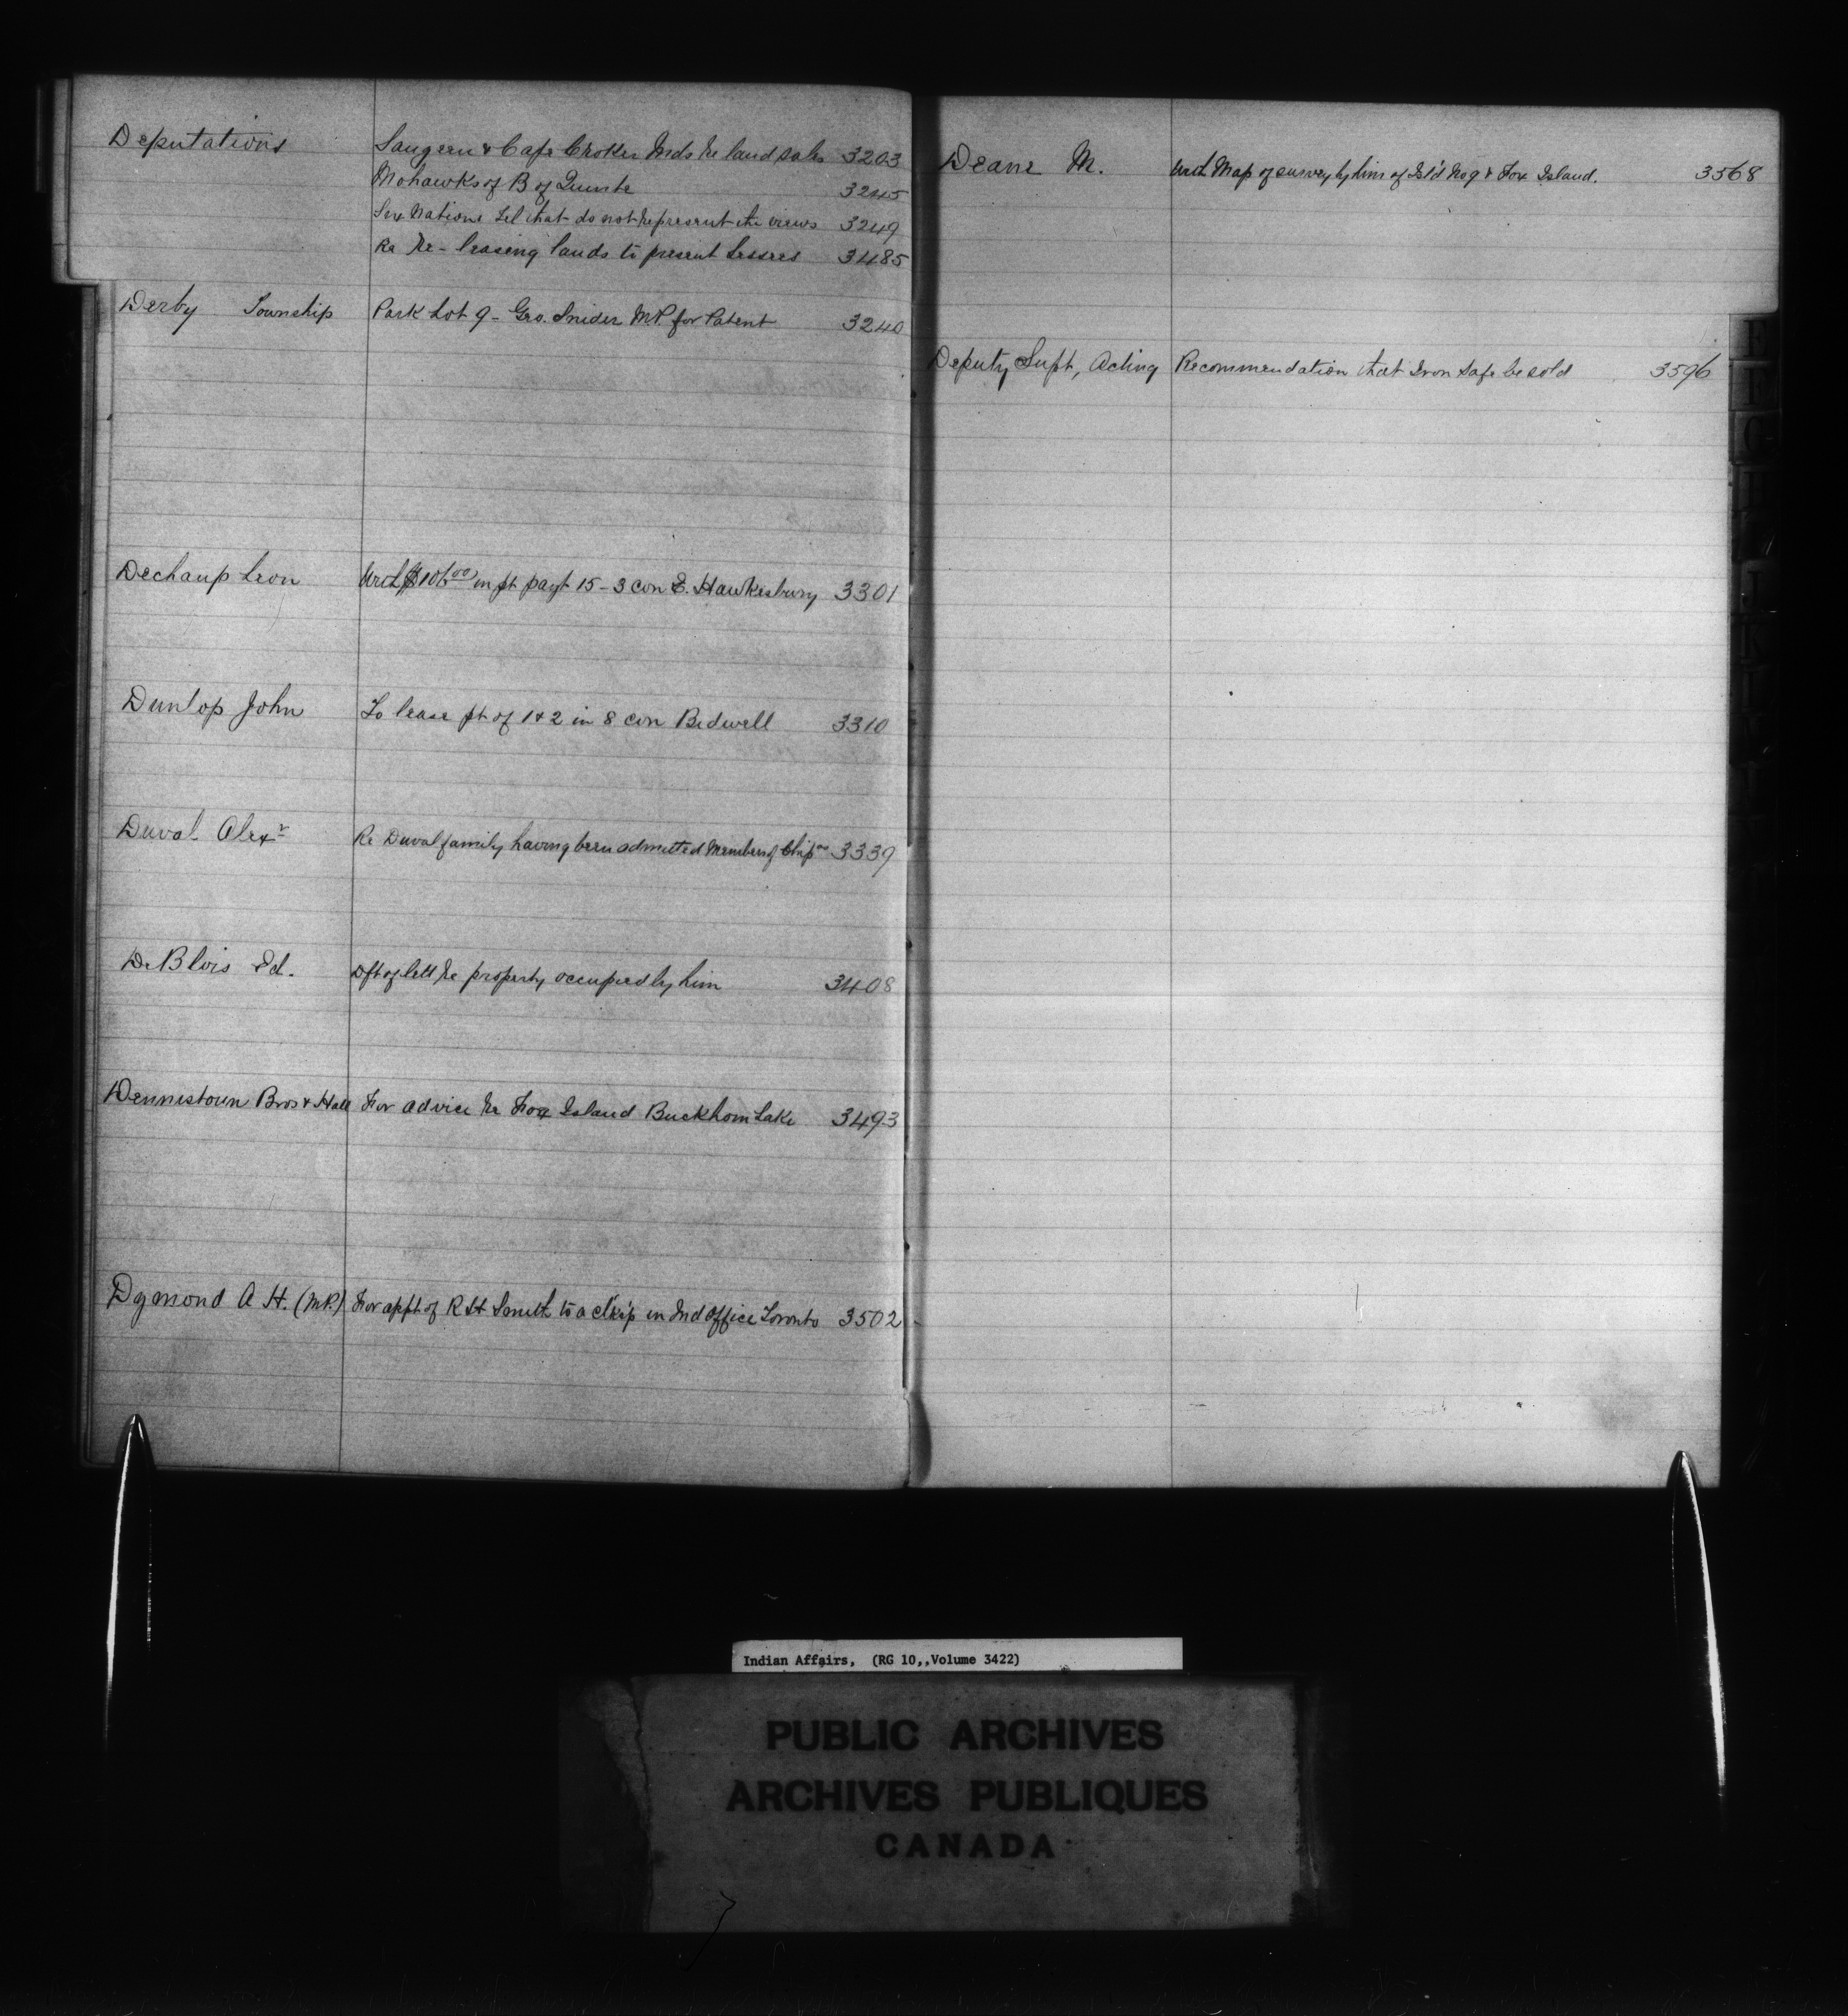 Deputations Saugeen & Cape Croker Inds re land sales 3203
Mohawks of B of Quinte 3245
Six Nations Tel that do not represent the views 3249
Re Re-leasing lands to present Lessees 3485
Derby Township Park Lot 9 - Geo. Snider M.P. for Patent 3240
Dechaup Leon in pt payt 15-3 con E. Hawkesbury 3301
Dunlop John To lease pt of 1 & 2 in 8 con Bidwell 3310
Duval Alexr Re Duval family having been admitted Members of Chipas 3339
DeBlois Ed. Dft of lett re property occupied by him 3408
Dennistoun Bros & Hall For advice re Fox Island Buckhorn Lake 3493
Dymond A H. (M.P.) For appt of R H Smith to a cl'k'p in Ind Office Toronto 3502
Deane M. Map of survey by him of Isl'd No 9 & Fox Island. 3568
Deputy Supt, Acting Recommendation that Iron Safe be sold 3596
Indian Affairs, (RG 10,,Volume 3422)
PUBLIC ARCHIVES
ARCHIVES PUBLIQUES
CANADA